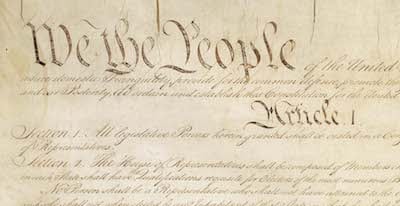 We the People of the United
insure domestic Tranquility, provide for the common defence, promote the
and our Posterity, do ordain and establish this Constitution for the United
Article. I.
Section. 1. All legislative Powers herein granted shall be vested in a Cong
of Representatives.
Section. 2. The House of Representatives shall be composed of Members
in each State shall have Qualifications requisite for Electors of the most numerous B
No Person shall be a Representative who shall not have attained to the